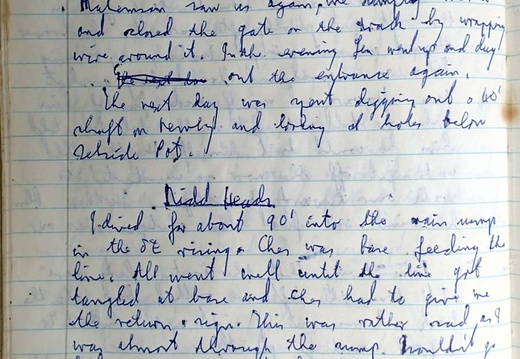 saw us again, we
and closed the gate on the track by wrapping
wire around it. In the evening Jen went up and dug
out the entrance again.
The next day was spent digging out a 40'
shaft on Newby and looking at holes below
Pot.
Nidd Heads
I dived for about 90' into the main sump
in the SE rising. Ches was base feeding the
line. All went well until the line got
tangled at base and Ches had to give me
the return sign. This was rather sad as I
was almost through the sump. Wouldn't go